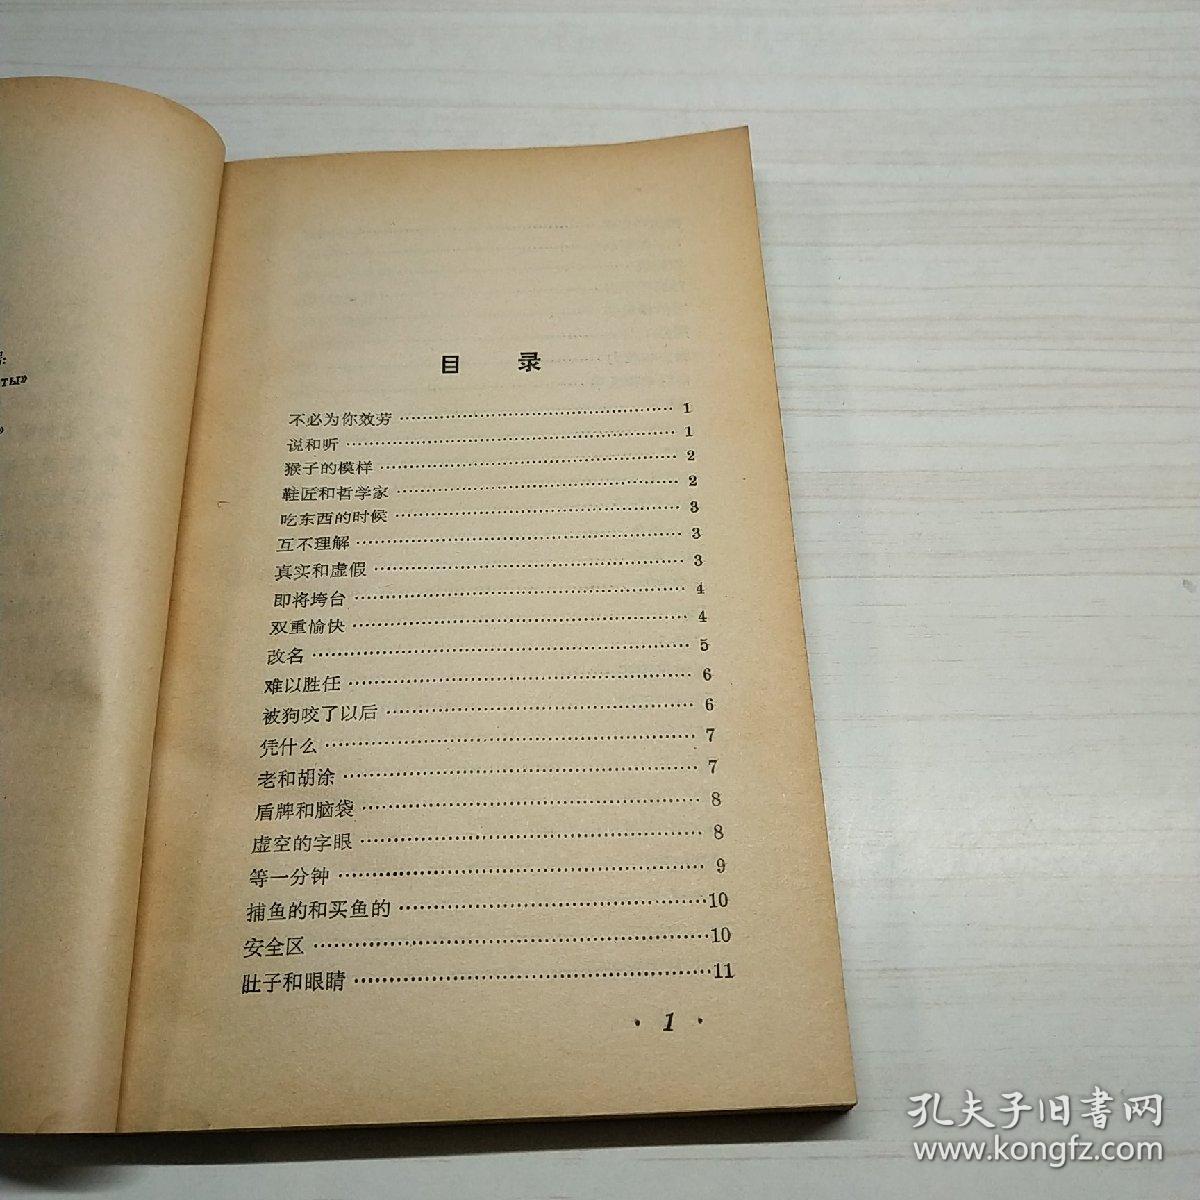 ты»
»
目 录
不必为你效劳 1
说和听 1
猴子的模样 2
鞋匠和哲学家 2
吃东西的时候 3
互不理解 3
真实和虚假 3
即将垮台 4
双重愉快 4
改名 5
难以胜任 6
被狗咬了以后 6
凭什么 7
老和胡涂 7
盾牌和脑袋 8
虚空的字眼 8
等一分钟 9
捕鱼的和买鱼的 10
安全区 10
肚子和眼睛 11
· 1 ·
孔夫子旧书网
www.kongfz.com